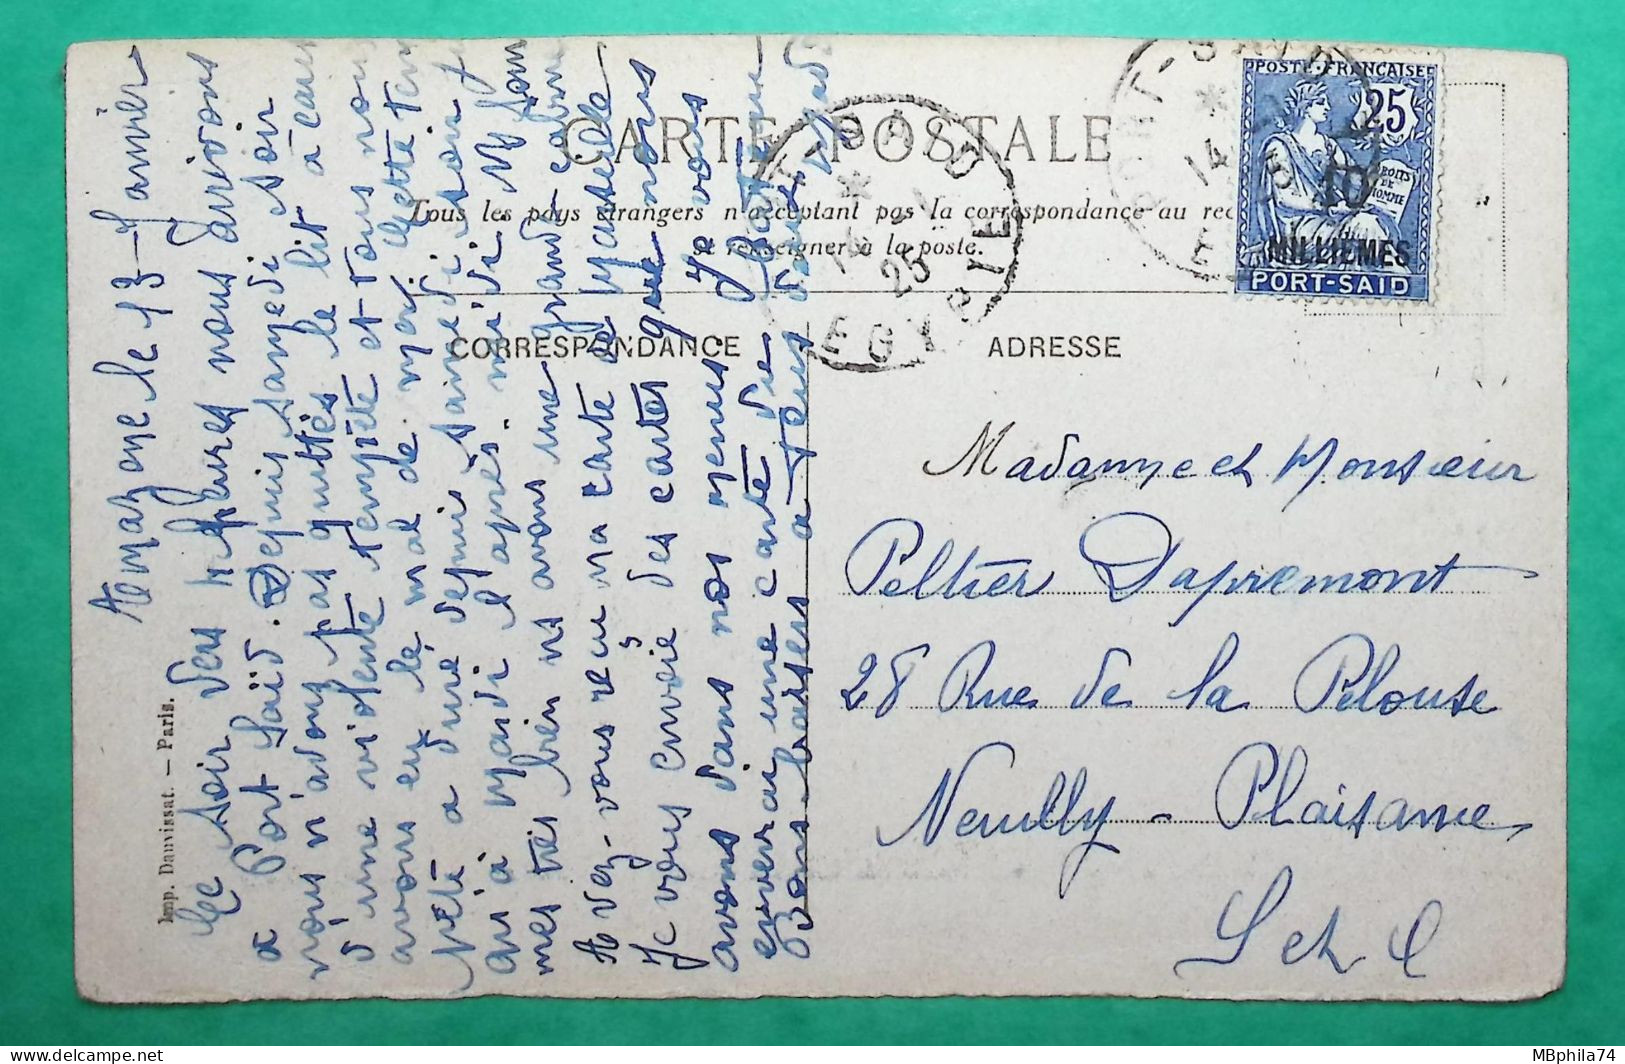 CARTE POSTALE
Tous les pays étrangers n'acceptant pas la correspondance au rec
se renseigner à la poste.
CORRESPONDANCE
ADRESSE
POSTE FRANÇAISE
25
DROITS DE HOMME
10
MILLIEMES
PORT-SAID
PORT-SAID
14
EGYPTE
14
25
EGYPTE
Imp. Dauvissat. — Paris.
Amazone le 13 Janvier
Ce soir vers heures nous arrivons
à Port Saïd. Depuis samedi soir
nous n'avons pas quittés le lit à cau
d'une violente tempête et tous nou
avons eu le mal de mer. Cette tem
pête a duré depuis samedi
qu'à Mardi l'après-midi.
mes très bien ns avons une grande cabine
Avez-vous reçu ma carte de Marseille
Je vous envoie des cartes que nous
avons dans nos menus. Je vous
enverrai une carte de
Bons baisers à tous deux
Madame et Monsieur
Peltier Dapremont
28 Rue de la Pelouse
Neuilly - Plaisance
S et O
MBphila74